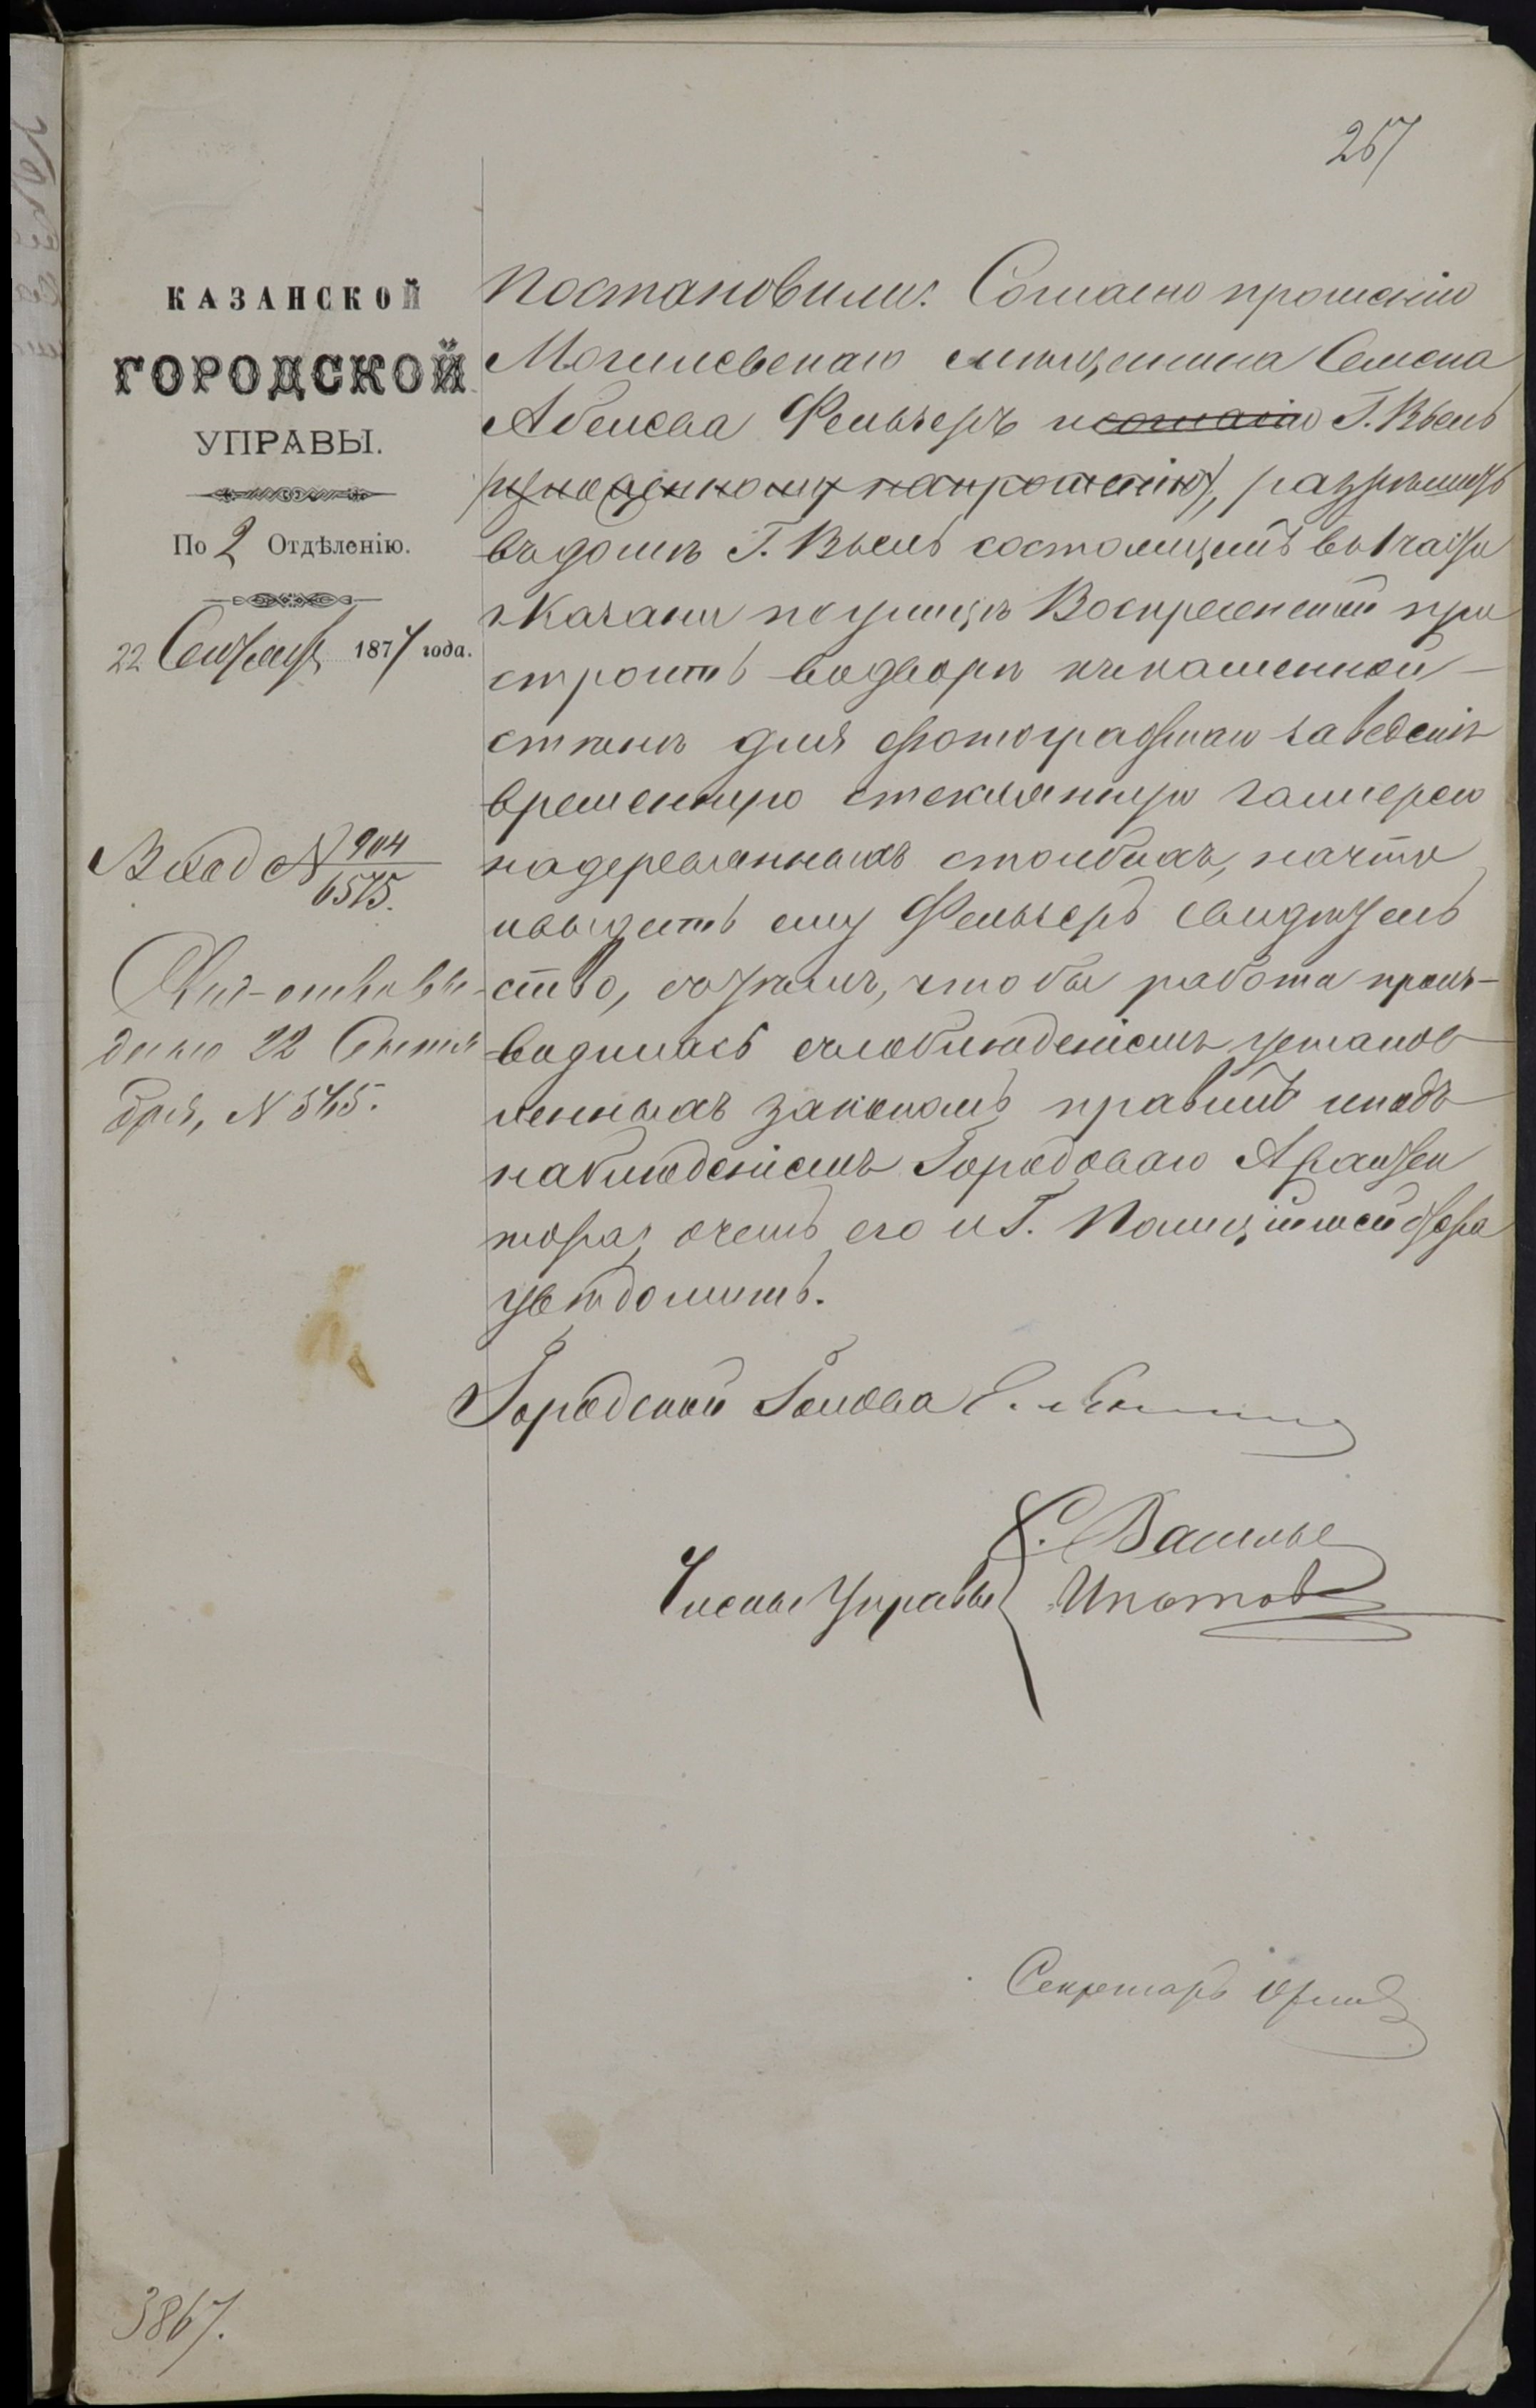 267
КАЗАНСКОЙ
ГОРОДСКОЙ
УПРАВЫ.
По 2 Отдѣленію.
22 Сентября 1877 года.
Вход № 904
6575.
Свид-ство вы-
дано 22 Сентя
бря, № 565.
Постановили: Согласно прошенію
Могилевскаго мѣщанина Семена
Абелева Фельзеръ и согласію Г. Вьель
на прошеніи), разрѣшить
въ домѣ Г. Вьель состоящемъ въ 1 части
г. Казани по улицѣ Воскресенской при
строить во дворѣ къ каменной
стѣнѣ для фотографнаго заведенія
временную стеклянную галлерею
на деревянныхъ столбахъ, на что
и выдать ему Фельзеръ свидѣтель
ство, съ тѣмъ, чтобы работа произ-
водилась съ соблюденіемъ установ
ленныхъ закономъ правилъ и подъ
наблюденіемъ Городоваго Архитек
тора, о чемъ его и Г. Полиціймейстера
увѣдомить.
Городской Голова
Члены Управы
С. Василье
Ипатов
Секретарь
3867.